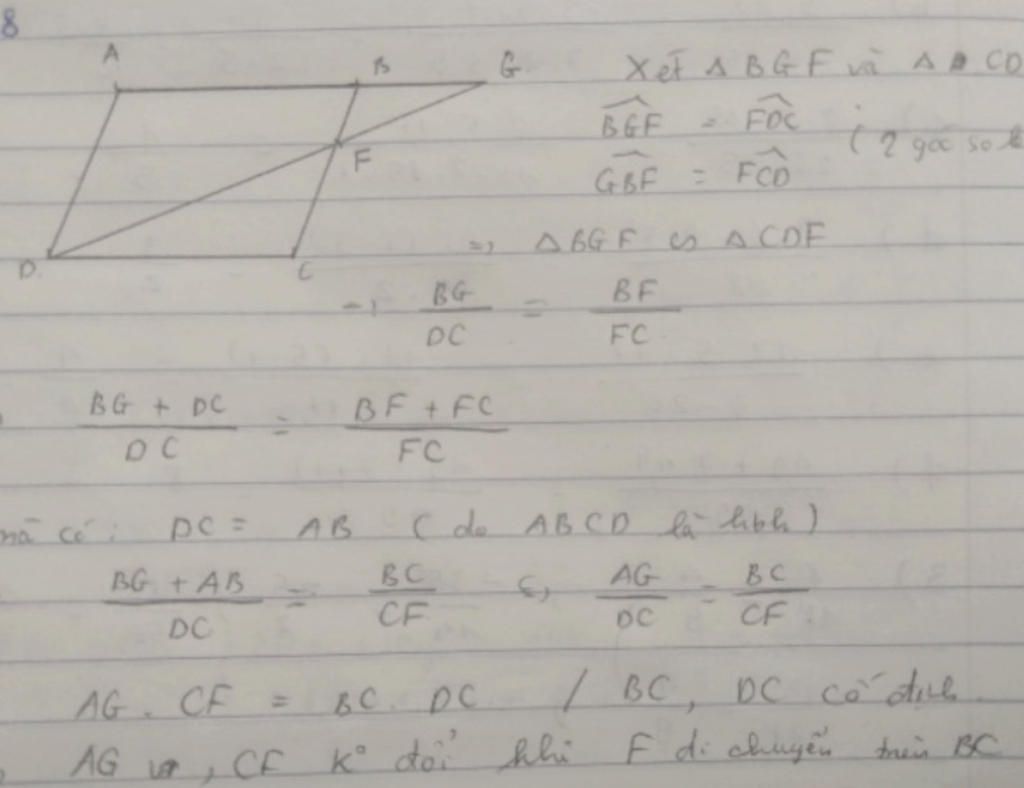 8
A B G
F
D C
Xét Δ BGF và Δ CD
BGF = FDC
GBF = FCD
( 2 góc so l
=> Δ BGF ∽ Δ CDF
=> BG/DC = BF/FC
BG + DC/DC = BF + FC/FC
mà có : DC = AB ( do ABCD là hbh )
BG + AB/DC = BC/CF => AG/DC = BC/CF
AG . CF = BC . DC / BC, DC cố định
AG , CF k° đổi khi F di chuyển trên BC